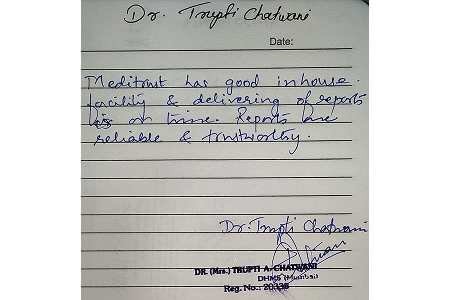 Dr. Trupti Chatwani
Date:
Meditrust has good inhouse.
facility & delivering of reports
is on time. Reports are
reliable & trustworthy.
Dr. Trupti Chatwani
DR. (Mrs.) TRUPTI A. CHATWANI
DHMS (Mumbai)
Reg. No.: 20335